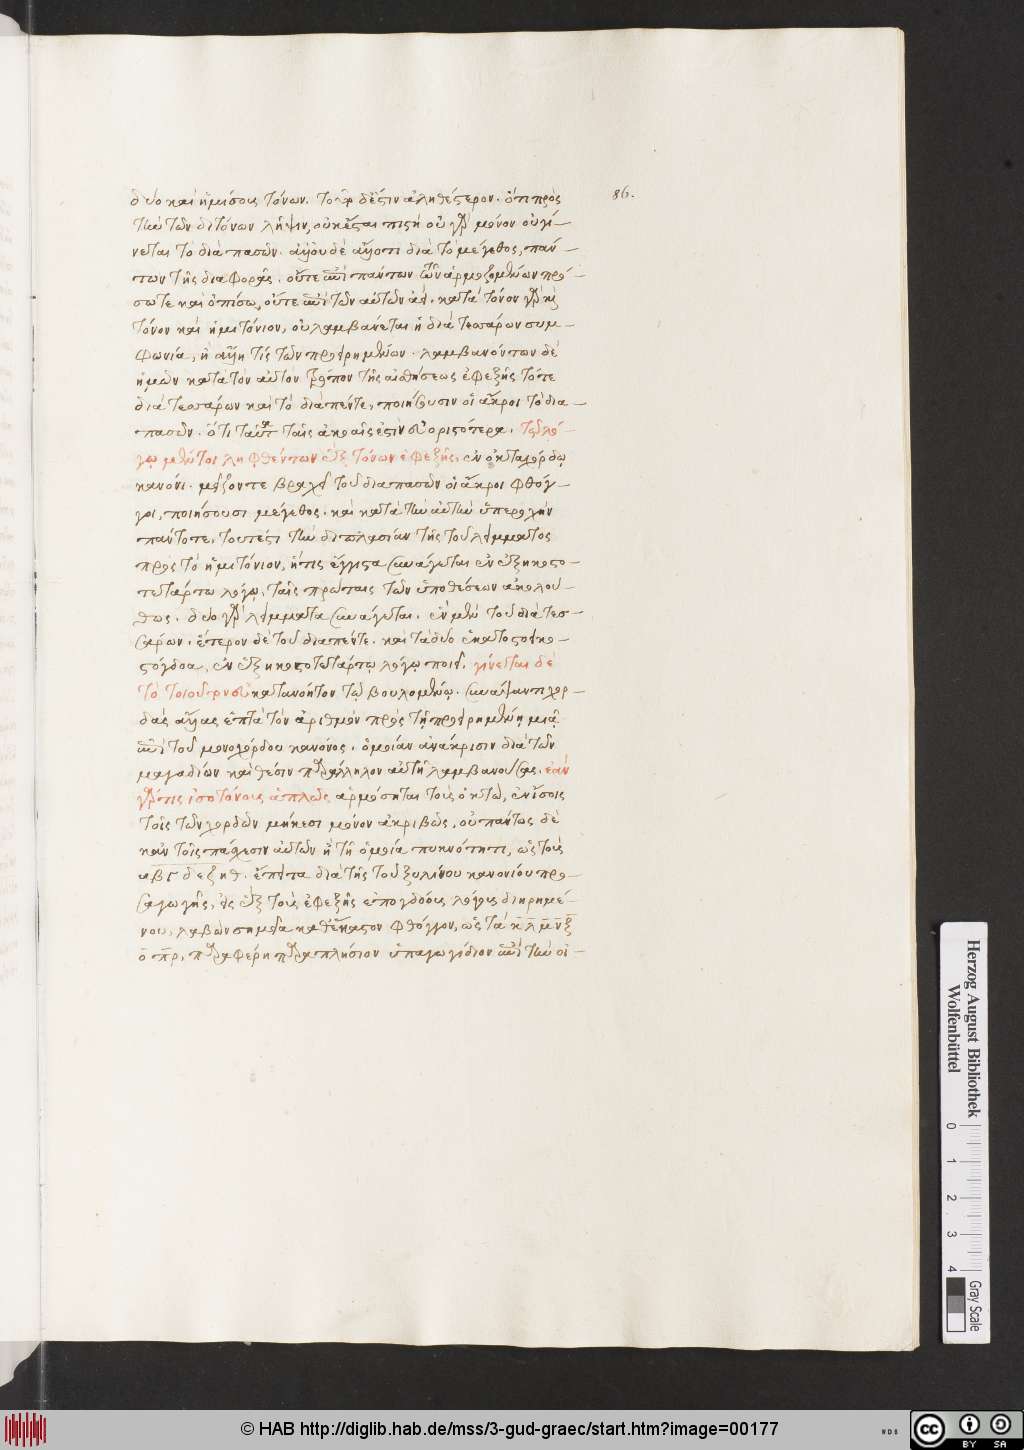 δύο καὶ ἡμίσους τόνων. τοῦ γὰρ δέ ἐστιν ἀληθέστερον. ὅτι πρὸς 86.
τὴν τῶν διτόνων λῆψιν, οὐκ ἔσται πιστὴ οὐ γὰρ μόνον οὐ γί-
νεται τὸ διὰ πασῶν. ἀλλ' οὐδὲ ἄλλο τι διὰ τὸ μέγεθος, παν-
των τῆς διαφορᾶς. οὔτε ἐπὶ πάντων τῶν ἁρμοζομένων πρό-
σω τε καὶ ὀπίσω, οὔτε ἐπὶ τῶν αὐτῶν ἀεί. κατὰ τόνον γὰρ καὶ
τόνον καὶ ἡμιτόνιον, οὐ λαμβάνεται ἡ διὰ τεσσάρων συμ-
φωνία, ἢ ἄλλη τίς τῶν προειρημένων. λαμβανόντων δὲ
ἡμῶν κατὰ τὸν αὐτὸν τρόπον τῆς αἰσθήσεως ἐφεξῆς τό τε
διὰ τεσσάρων καὶ τὸ διὰ πέντε, ποιήσουσιν οἱ ἄκροι τὸ διὰ -
πασῶν. ὅτι ταῦτα ταῖς ἀκοαῖς ἐστὶν εὐοριστότερα. τῷ λό-
γῳ μέντοι ληφθέντων ἓξ τόνων ἐφεξῆς, ἐν ὀκταχόρδῳ
κανόνι. μεῖζόν τε βραχεῖ τοῦ διαπασῶν οἱ ἄκροι φθόγ-
γοι, ποιήσουσι μέγεθος. καὶ κατὰ τὴν αὐτὴν ὑπεροχὴν
πάντοτε, τουτέστι τὴν διπλασίαν τῆς τοῦ λείμματος
πρὸς τὸ ἡμιτόνιον, ἥτις ἔγγιστα συνάγεται ἐν ἑξηκοστο-
τετάρτῳ λόγῳ, ταῖς πρώταις τῶν ὑποθέσεων ἀκολού-
θως. δύο γὰρ λείμματα συνάγεται. ἓν μὲν τοῦ διὰ τεσ-
σάρων. ἕτερον δὲ τοῦ διαπέντε. καὶ τὰ δύο ἑκατοστοεικο-
στόγδοα, ἐν ἑξηκοστοτετάρτῳ λόγῳ ποιεῖ. γίνεται δὲ
τὸ τοιοῦτον εὐκατανόητον τῷ βουλομένῳ. συνάψαντι χορ-
δὰς ἄλλας ἑπτὰ τὸν ἀριθμὸν πρὸς τῇ προειρημένῃ μιᾷ
ἐπὶ τοῦ μονοχόρδου κανόνος. ὁμοίαν ἀνάκρισιν διὰ τῶν
μαγαδίων καὶ θέσιν παράλληλον αὐτῇ λαμβανούσας. ἐὰν
γάρ τις ἰσοτόνους ἁπλῶς ἁρμόσηται τοὺς ὀκτώ, ἐν ἴσοις
τοῖς τῶν χορδῶν μήκεσι μόνον ἀκριβῶς, οὐ πάντως δὲ
κἀν τοῖς πάχεσιν αὐτῶν ἢ τῇ ὁμοίᾳ πυκνότητι, ὡς τοὺς
α β γ δ ε ζ η θ. ἔπειτα διὰ τῆς τοῦ ξυλίνου κανονίου προ-
σαγωγῆς, εἰς ἓξ τοὺς ἐφεξῆς ἐπογδόους λόγους διῃρημέ-
νου, λαβὼν σημεῖα καθ' ἕκαστον φθόγγον, ὡς τὰ κ λ μ ν ξ
ο πρ, παραφέρῃ παραπλήσιον ὑπαγωγίδιον ἐπὶ τὴν οἰ-
Herzog August Bibliothek
Wolfenbüttel
0 1 2 3 4
Gray Scale
© HAB http://diglib.hab.de/mss/3-gud-graec/start.htm?image=00177
cc BY SA